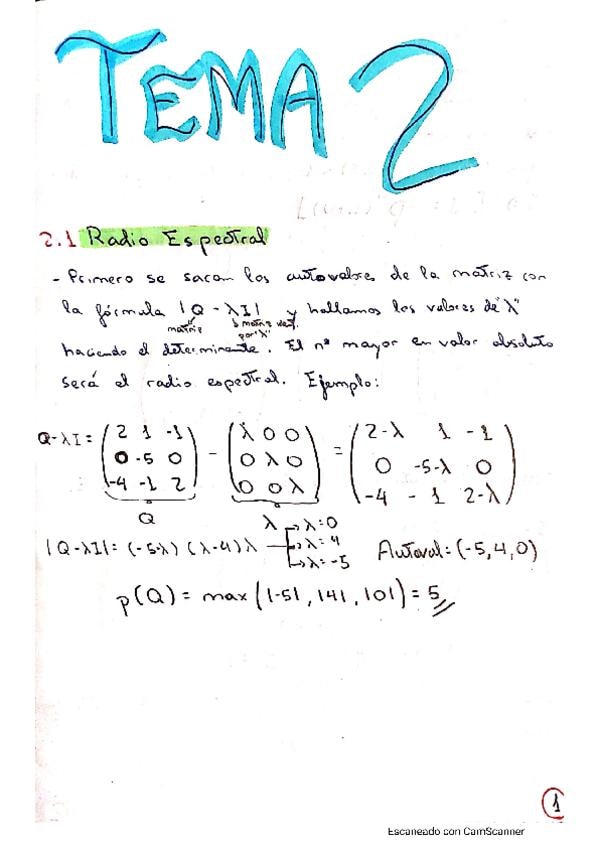 TEMA 2
2.1 Radio Espectral
- Primero se sacan los autovalores de la matriz con
la fórmula |Q - λI| y hallamos los valores de "λ"
matriz matriz id. por "λ"
haciendo el determinante. El nº mayor en valor absoluto
será el radio espectral. Ejemplo:
Q-λI = (2 1 -1) - (λ 0 0) = (2-λ 1 -1)
(0 -5 0) (0 λ 0) (0 -5-λ 0)
(-4 -1 2) (0 0 λ) (-4 -1 2-λ)
Q λ
|Q-λI| = (-5-λ) (λ-4) λ → λ=0
→ λ=4
→ λ=-5
Autoval: (-5, 4, 0)
ρ(Q) = max(|-5|, |4|, |0|) = 5
1
Escaneado con CamScanner